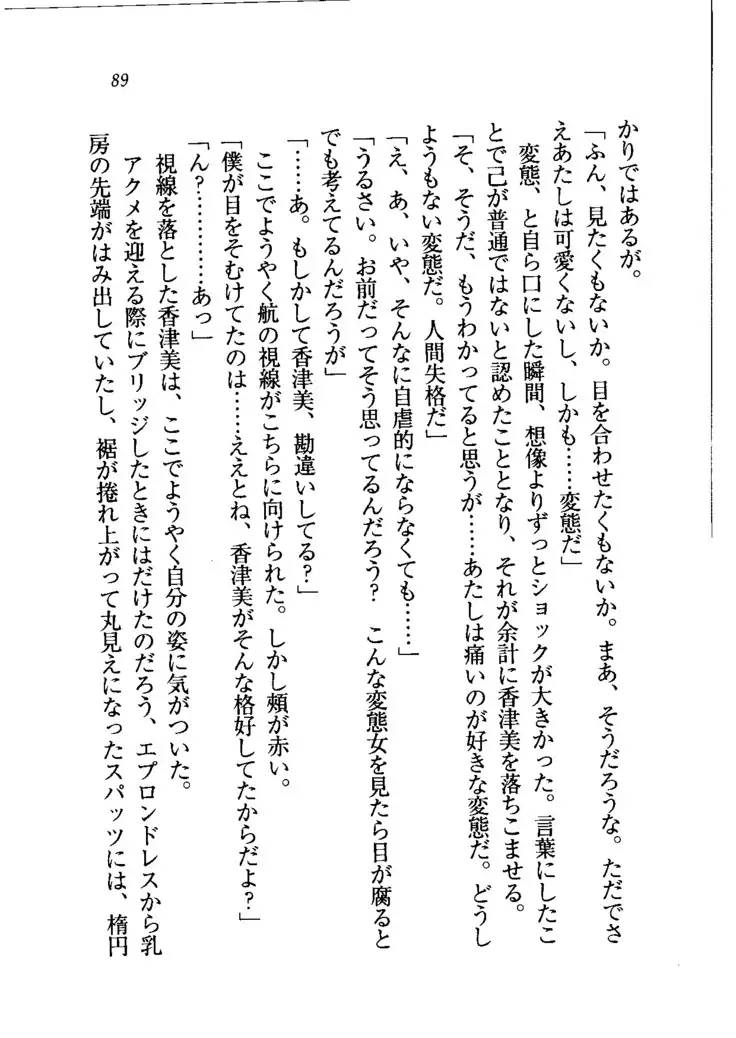 89
かりではあるが。
「ふん、見たくもないか。目を合わせたくもないか。まあ、そうだろうな。ただでさ
えあたしは可愛くないし、しかも……変態だ」
変態、と自ら口にした瞬間、想像よりずっとショックが大きかった。言葉にしたこ
とで己が普通ではないと認めたこととなり、それが余計に香津美を落ちこませる。
「そ、そうだ、もうわかってると思うが……あたしは痛いのが好きな変態だ。どうし
ようもない変態だ。人間失格だ」
「え、あ、いや、そんなに自虐的にならなくても……」
「うるさい。お前だってそう思ってるんだろう？　こんな変態女を見たら目が腐ると
でも考えてるんだろうが」
「……あ。もしかして香津美、勘違いしてる？」
ここでようやく航の視線がこちらに向けられた。しかし頰が赤い。
「僕が目をそむけてたのは……ええとね、香津美がそんな格好してたからだよ？」
「ん？…………あっ」
視線を落とした香津美は、ここでようやく自分の姿に気がついた。
アクメを迎える際にブリッジしたときにはだけたのだろう、エプロンドレスから乳
房の先端がはみ出していたし、裾が捲れ上がって丸見えになったスパッツには、楕円